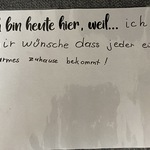 h bin heute hier, weil... ich
ir wünsche dass jeder ei
armes zuhause bekommt!